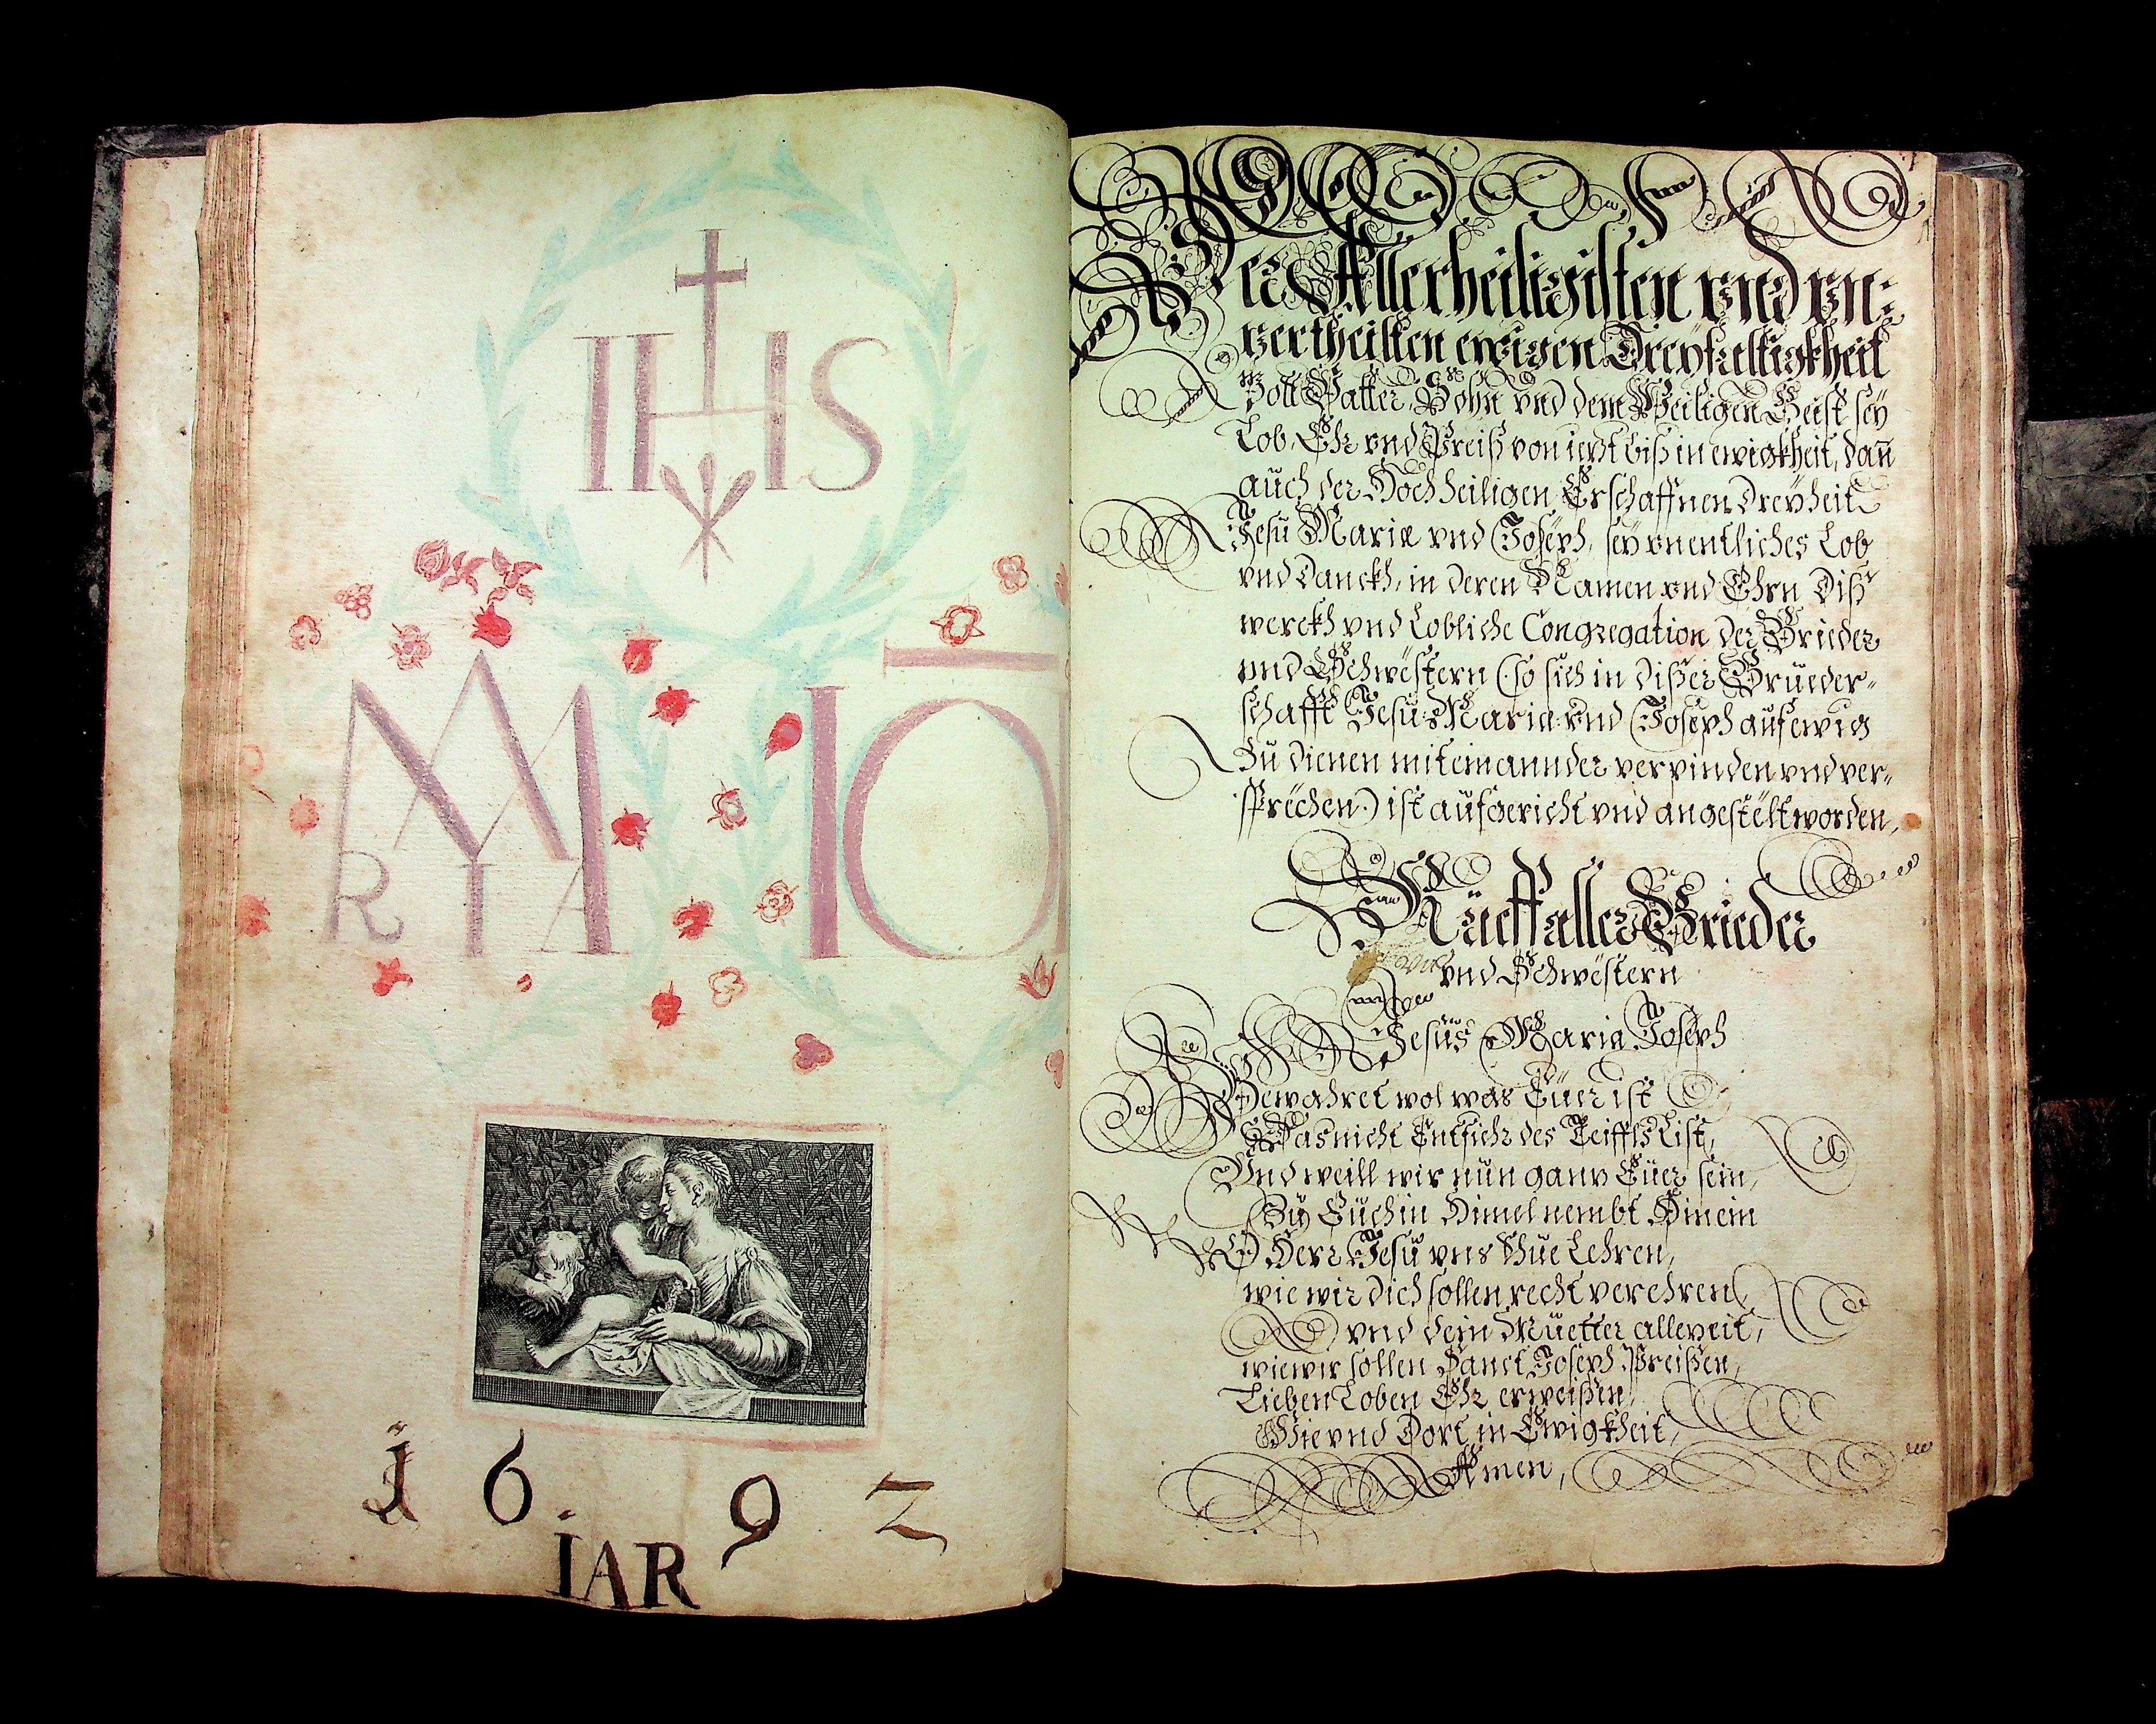 IHS
MARIA IO
RIA
1692
IAR
Der Allerheiligisten vnd vn:
zertheilten ewigen Dreyfaltigkheit
Gott Vatter, Sohn vnd dem Heiligen Geist sey
Lob, Ehr vnd Preiß von iezt biß in ewigkheit, dañ
auch der Hochheiligen Erschaffnen dreyheit
Jesu Mariæ vnd Joseph, sey vnentliches Lob
vnd danckh, in deren Namen vnd Ehrn diß
werckh vnd Lobliche Congregation der Brieder
vnd Schwëstern (so sich in dißer Brueder-
schafft Jesu: Maria: vnd Joseph auf ewig
Zu dienen miteinannder verpinden vnd ver-
sprëchen.) ist aufgericht vnd angestëlt worden,
Rueff aller Brieder
vnd Schwëstern
Jesus Maria Joseph
Bewahret wol was Eüer ist
das nicht Entfiehr des Teiffls List,
Vnd weill wir nun ganz Eüer sein,
Zu Eüch in Himel nembt Hinein
O Herr Jesu vns thue Lehren,
wie wir dich sollen recht verehren
vnd dein Muetter allezeit,
wie wir sollen Sanct Joseph Preißen,
Lieben Loben Ehr erweißen,
Hie vnd Dort in Ewigkheit,
Amen,